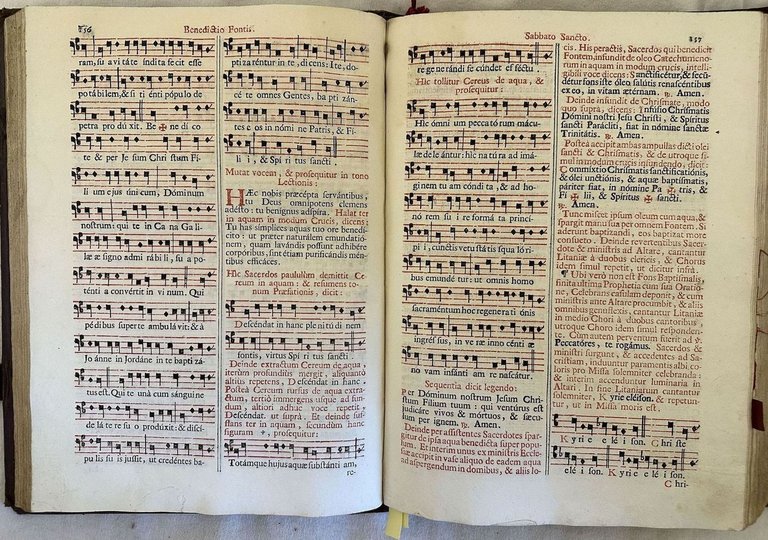 256 Benedictio Fontis.
ram, su a vi tá te índita fe cit esse
po tá bilem, & si ti énti pópulo de
petra pro dú xit. Be ✠ ne dí co
te & per Je sum Chri stum Fí-
li um e jus ú ni cum, Dóminum
nostrum: qui te in Ca na Ga li-
læ æ signo admi rá bi li, su a po-
ténti a convértit in vi num. Qui
pé dibus super te ambulá vit: & à
Jo ánne in Jordáne in te bapti zá-
tus est. Qui te unà cum sánguine
de lá te re su o prodúxit: & discí-
pu lis su is jussit, ut credéntes ba-
pti za rén tur in te, dicens: Ite, do-
cé te omnes Gentes, ba pti zán-
tes e os in nómi ne Patris, & Fí-
li i, & Spí ri tus sancti.
Mutat vocem, & prosequitur in tono
Lectionis:
HÆc nobis præcépta servántibus,
tu Deus omnípotens clemens
adésto: tu benígnus aspíra. Halat ter
in aquam in modum Crucis, dicens:
Tu has símplices aquas tuo ore bene-
dícito: ut præter naturálem emundatió-
nem, quam lavándis possunt adhibére
corpóribus, sint étiam purificándis mén-
tibus efficáces.
Hîc Sacerdos paululùm demittit Ce-
reum in aquam: & resumens to-
num Præfationis, dicit:
Descéndat in hanc ple ni tú di nem
fontis, virtus Spí ri tus sancti.
Deinde extractum Cereum de aqua,
iterùm profundiùs mergit, aliquantò
altiùs repetens, Descéndat in hanc.
Posteà Cereum rursus de aqua extra-
ctum, tertiò immergens usque ad fun-
dum, altiori adhuc voce repetit,
Descéndat. ut suprà. Et deinde suf-
flans ter in aquam, secundùm hanc
figuram , prosequitur:
Totámque hujus aquæ substánti am,
re-
Sabbato Sancto. 257
re ge ne rándi fe cúndet ef fé ctu.
Hîc tollitur Cereus de aqua, &
prosequitur:
Hîc ómni um pec ca tó rum mácu-
læ de le ántur: hîc na tú ra ad imá-
gi nem tu am cóndi ta, & ad ho-
nó rem su i re formá ta princí-
pi i, cunctis ve tu stá tis squa ló ri-
bus emundé tur: ut omnis homo
sacraméntum hoc regenera ti ónis
ingrés sus, in ve ræ inno cénti æ
no vam infánti am re nascátur.
Sequentia dicit legendo:
Per Dóminum nostrum Jesum Chri-
stum Fílium tuum: qui ventúrus est
judicáre vivos & mórtuos, & sæcu-
lum per ignem. ℟. Amen.
Deinde per assistentes Sacerdotes spar-
gitur de ipsa aqua benedicta super popu-
lum. Et interim unus ex ministris Eccle-
siæ accipit in vase aliquo de eadem aqua
ad aspergendum in domibus, & aliis lo-
cis. His peractis, Sacerdos qui benedicit
Fontem, infundit de oleo Catechumeno-
rum in aquam in modum crucis, intelli-
gibili voce dicens: Sanctificétur, & fecún-
détur fons iste óleo salútis renascéntibus
ex eo, in vitam ætérnam. ℟. Amen.
Deinde infundit de Chrismate, modo
quo supra, dicens: Infúsio Chrísmatis
Dómini nostri Jesu Christi, & Spíritus
sancti Parácliti, fiat in nómine sanctæ
Trinitátis. ℟. Amen.
Posteà accipit ambas ampullas dicti olei
sancti & Chrismatis, & de utroque si-
mul in modum crucis infundendo, dicit:
Commíxtio Chrísmatis sanctificatiónis,
& ólei unctiónis, & aquæ baptísmatis,
páriter fiat, in nómine Pa ✠ tris, &
Fí ✠ lii, & Spíritus ✠ sancti.
℟. Amen.
Tunc miscet ipsum oleum cum aqua, &
spargit manu sua per omnem Fontem. Si
aderunt baptizandi, eos baptizet more
consueto. Deinde revertentibus Sacer-
dote & ministris ad Altare, cantantur
Litaniæ à duobus clericis, & Chorus
idem simul repetit, ut dicitur infrà.
¶ Ubi verò non est Fons Baptismalis,
finita ultima Prophetia cum sua Oratio-
ne, Celebrans casulam deponit, & cum
ministris ante Altare procumbit, & aliis
omnibus genuflexis, cantantur Litaniæ
in medio Chori à duobus cantoribus,
utroque Choro idem simul responden-
te. Cùm autem perventum fuerit ad ℣.
Peccatóres, te rogámus. Sacerdos &
ministri surgunt, & accedentes ad Sa-
cristiam, induuntur paramentis albis co-
loris pro Missa solemniter celebranda:
& interim accenduntur luminaria in
Altari. In fine Litaniarum cantantur
solemniter, Kyrie eléison. & repetun-
tur, ut in Missa moris est.
K yri e e lé i son. C hri ste
e lé i son. K yri e e lé i son.
C hri-